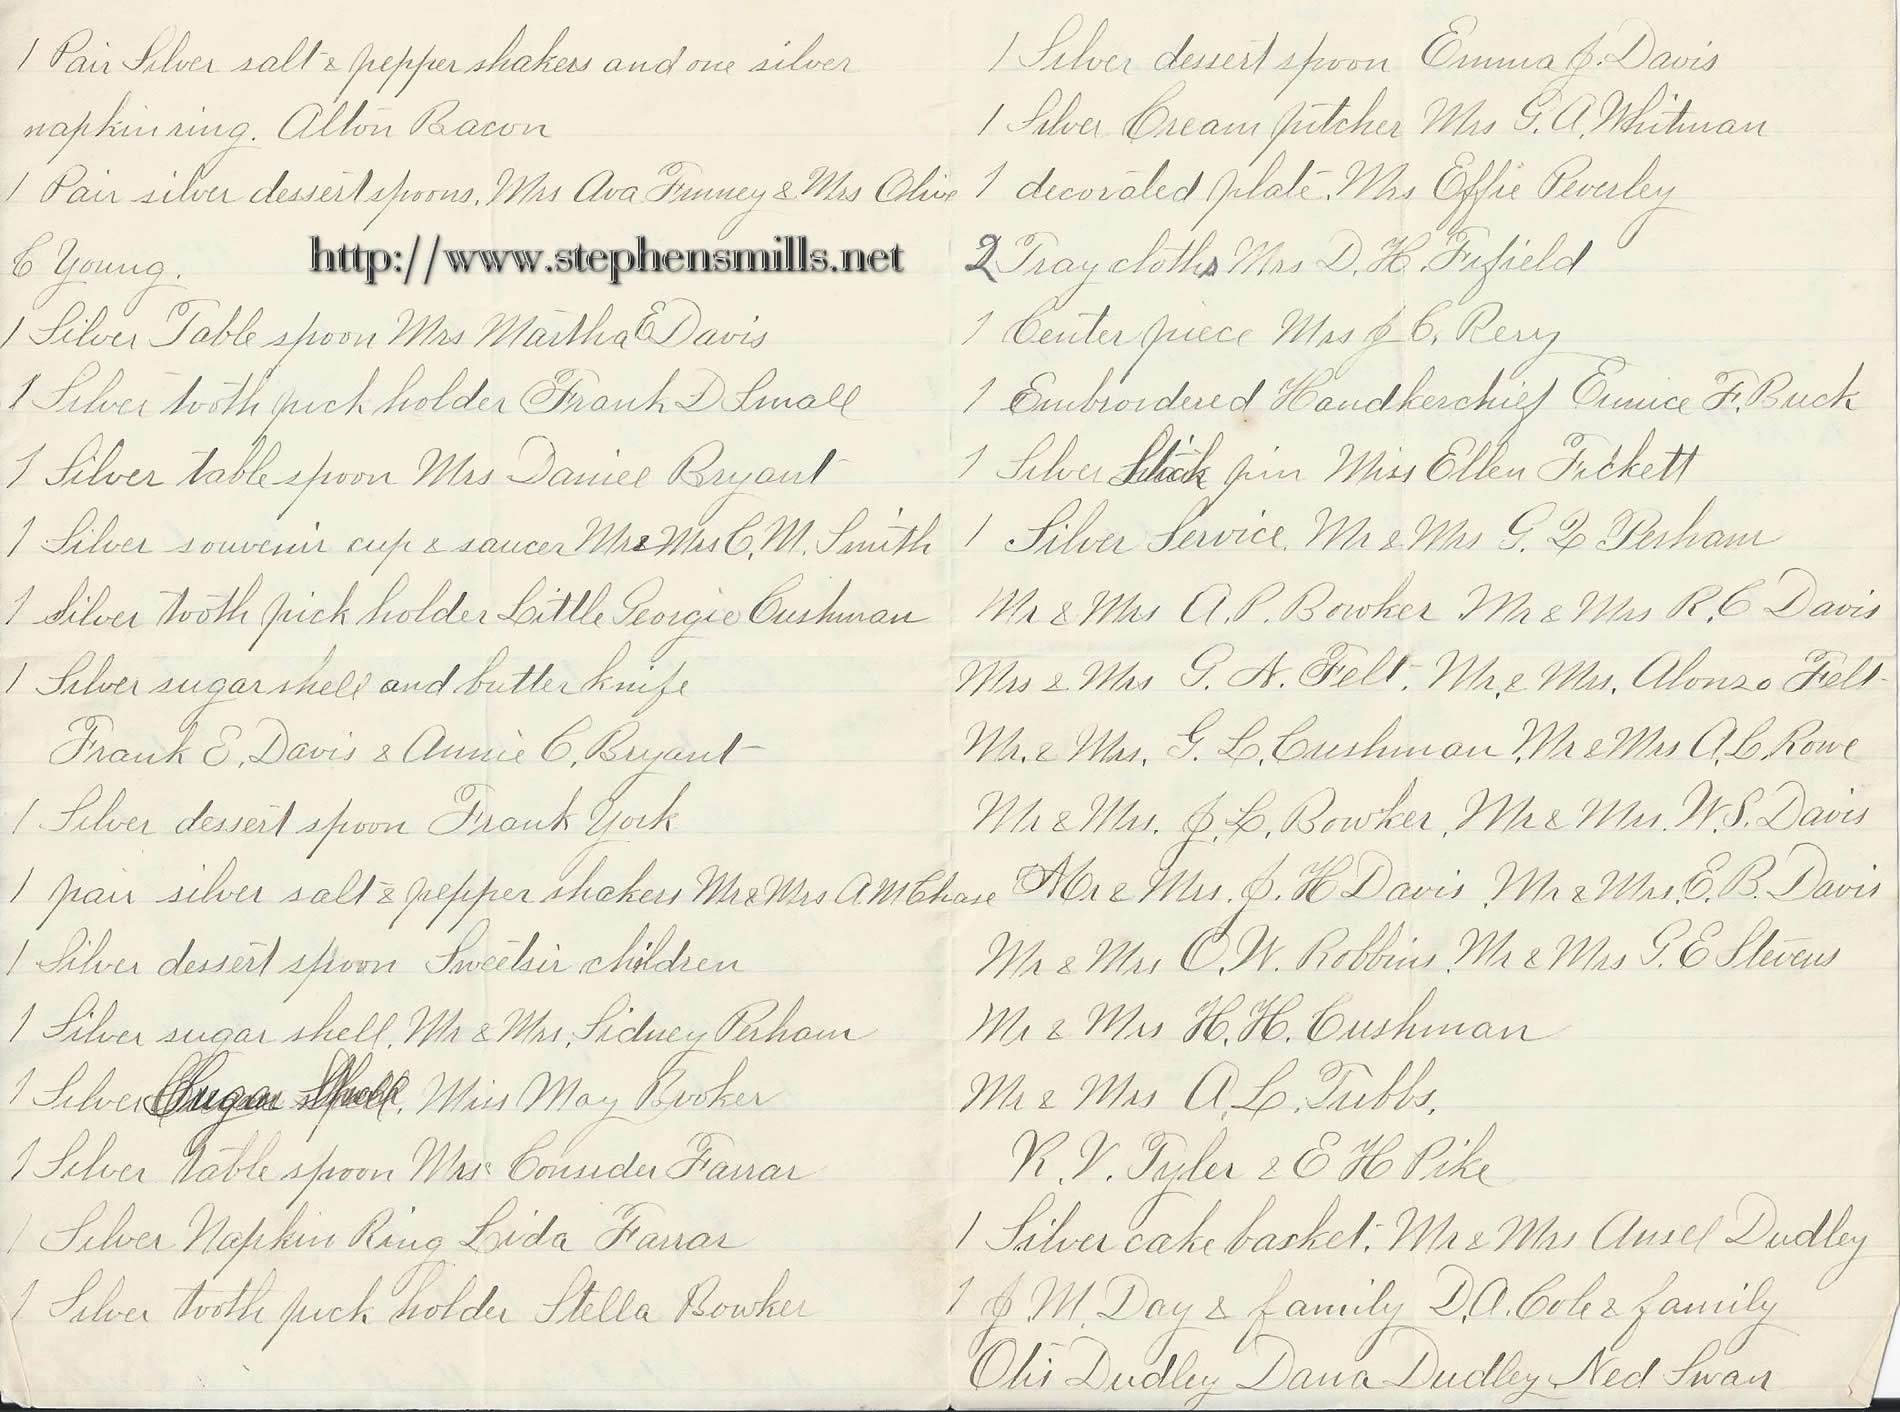 1 Pair Silver salt & pepper shakers and one silver
napkin ring. Alton Bacon
1 Pair silver dessert spoons, Mrs Ava Finney & Mrs Olive
C Young.
http://www.stephensmills.net
1 Silver Table spoon Mrs Martha E Davis
1 Silver tooth pick holder Frank D Small
1 Silver table spoon Mrs Daniel Bryant
1 Silver souvenir cup & saucer Mr & Mrs C. M. Smith
1 Silver tooth pick holder Little Georgie Cushman
1 Silver sugar shell and butter knife
Frank E. Davis & Annie C. Bryant
1 Silver dessert spoon Frank York
1 pair silver salt & pepper shakers Mr & Mrs A M Chase
1 Silver dessert spoon Sweetsir children
1 Silver sugar shell, Mr & Mrs, Sidney Perham
1 Silver Sugar Shell, Miss May Booker
1 Silver table spoon Mrs Consider Farrar
1 Silver Napkin Ring Lida Farrar
1 Silver tooth pick holder Stella Bowker
1 Silver dessert spoon Emma J. Davis
1 Silver Cream pitcher Mrs G. A. Whitman
1 decorated plate. Mrs Effie Peverley
2 Tray cloths Mrs D. H. Fifield
1 Center piece Mrs J C. Rery
1 Embroidered Handkerchief Eunice F. Buck
1 Silver Stick pin Miss Ellen Fickett
1 Silver Service. Mr & Mrs G. Q Perham
Mr & Mrs A. P. Bowker Mr & Mrs R. C Davis
Mrs & Mrs G. N. Felt. Mr. & Mrs. Alonzo Felt
Mr. & Mrs. G. L. Cushman, Mr & Mrs A. L. Rowe
Mr & Mrs. J. L. Bowker, Mr & Mrs. W. S. Davis
Mr & Mrs. J. H Davis, Mr & Mrs. E. B. Davis
Mr & Mrs O. W. Robbins, Mr & Mrs G. E Stevens
Mr & Mrs H. H. Cushman
Mr & Mrs A. L. Tubbs.
R. V. Tyler & E H Pike
1 Silver cake basket. Mr & Mrs Ansel Dudley
1 J M. Day & family D. A. Cole & family
Otis Dudley Dana Dudley Ned Swan